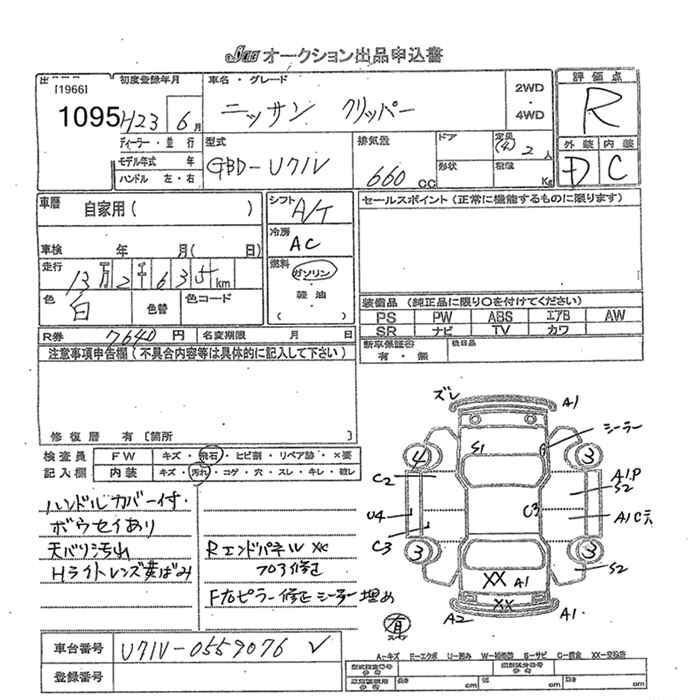 オークション出品申込書
[1966]
1095
初度登録年月
H23 6月
車名・グレード
ニッサン クリッパー
2WD
・
4WD
評価点
R
外装 内装
D C
ディーラー・並行
モデル年式 年
ハンドル 左・右
型式
GBD-U71V
排気量
660 CC
ドア
形状
定員
(4) 2 人
積載
Kg
車歴
自家用( )
シフト
A/T
冷房
AC
セールスポイント (正常に機能するものに限ります)
車検 年 月 ( 日)
走行
13万2千635km
燃料
ガソリン
軽油
( )
色
白
色替
色コード
装備品 (純正品に限り○を付けてください)
PS PW ABS エアB AW
SR ナビ TV カワ
R券 7640 円 名変期限 月 日
新車保証書
有・無
後日品
注意事項申告欄 (不具合内容等は具体的に記入して下さい)
修復歴 有 [箇所
検査員 FW キズ・飛石・ヒビ割・リペア跡・×要
記入欄 内装 キズ・汚れ・コゲ・穴・スレ・キレ・破レ
ハンドルカバー付.
ボウセイあり
天バリ汚れ
Hライトレンズ黄ばみ
Rエンドパネル XX
フロア修正
F右ピラー修正シーラー埋め
ズレ
A1
シーラー
S1
4
3
C2
A1.P
S2
U4
U3
C3
3
3
S2
XX A1
XX
A2
A1
有
A-キズ E-エクボ U-凹み W-補修跡 S-サビ C-腐食 XX-交換済
車台番号 U71V-0559076
登録番号
型式指定番号
類別区分番号
cm cm cm